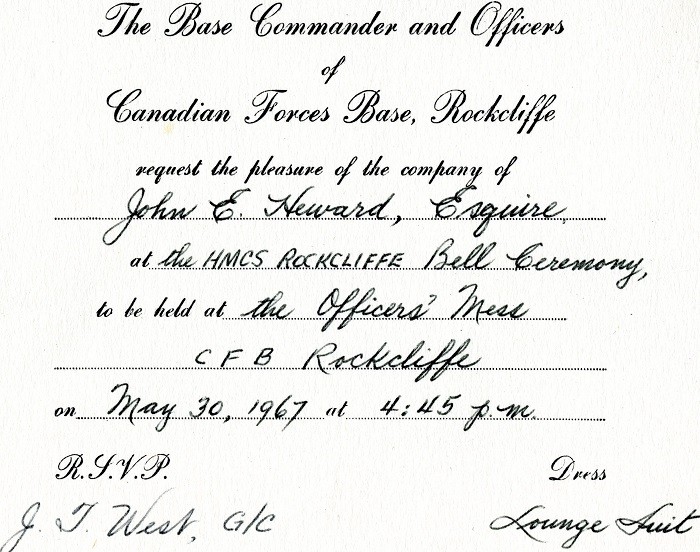 The Base Commander and Officers
of
Canadian Forces Base, Rockcliffe
request the pleasure of the company of
John E. Heward, Esquire
at the HMCS ROCKCLIFFE Bell Ceremony,
to be held at the Officers' Mess
CFB Rockcliffe
on May 30, 1967 at 4:45 p.m.
R.S.V.P. Dress
J. T. West, G/C Lounge Suit